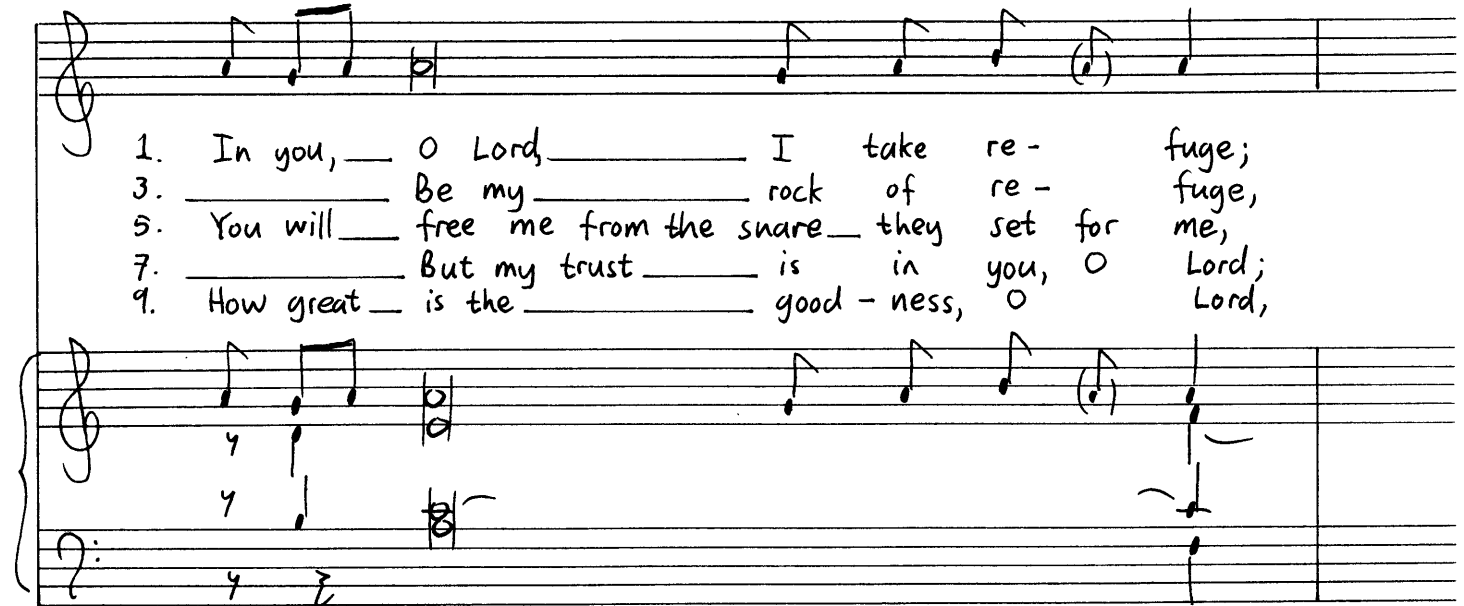 1. In you, O Lord, I take re - fuge;
3. Be my rock of re - fuge,
5. You will free me from the snare they set for me,
7. But my trust is in you, O Lord;
9. How great is the good - ness, O Lord,